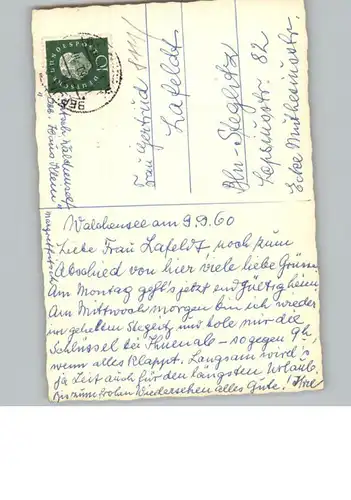 DEUTSCHE BUNDESPOST
10
Frau Gertrud
Lafeldt
Bln Steglitz
Lepsiusstr. 82
Ecke Muthesiusstr.
Walchensee am 9.9.60
Liebe Frau Lafeldt, noch zum
Abschied von hier viele liebe Grüsse.
Am Montag geht's jetzt endgültig heim.
Am Mittwoch morgen bin ich wieder
im geliebten Steglitz und hole mir die
Schlüssel bei Ihnen ab – so gegen 9h,
wenn alles klappt. Langsam wird's
ja Zeit auch für den längsten Urlaub.
Bis zum frohen Wiedersehen alles Gute! Ihre
Margret